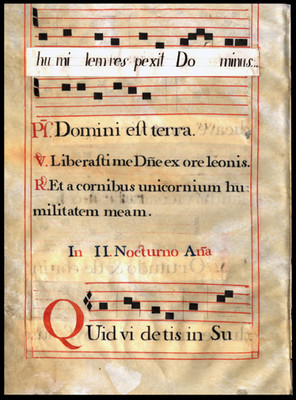 hu mi lem res pexit Do minus...
Ps̄. Domini est terra.
V. Liberasti me Dn̄e ex ore leonis.
R. Et a cornibus unicornium hu
militatem meam.
In II. Nocturno An̄a
Quid vi detis in Su